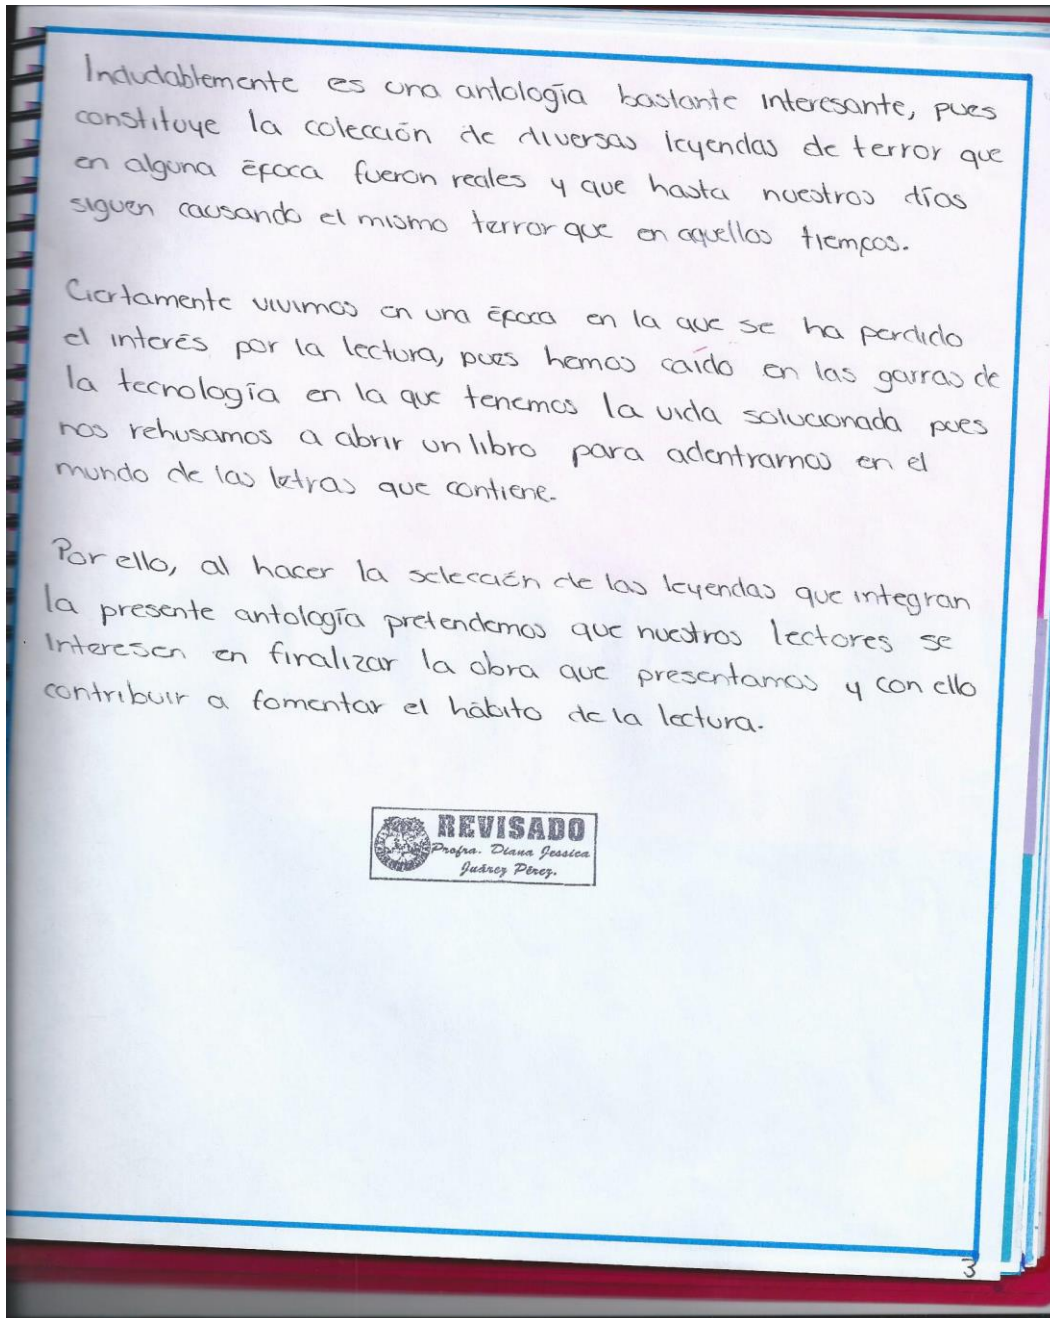 Indudablemente es una antología bastante interesante, pues
constituye la colección de diversas leyendas de terror que
en alguna época fueron reales y que hasta nuestros días
siguen causando el mismo terror que en aquellos tiempos.
Ciertamente vivimos en una época en la que se ha perdido
el interés por la lectura, pues hemos caído en las garras de
la tecnología en la que tenemos la vida solucionada pues
nos rehusamos a abrir un libro para adentrarnos en el
mundo de las letras que contiene.
Por ello, al hacer la selección de las leyendas que integran
la presente antología pretendemos que nuestros lectores se
interesen en finalizar la obra que presentamos y con ello
contribuir a fomentar el hábito de la lectura.
REVISADO
Profra. Diana Jessica
Juárez Pérez.
3